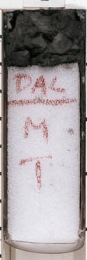 DAL
M
T